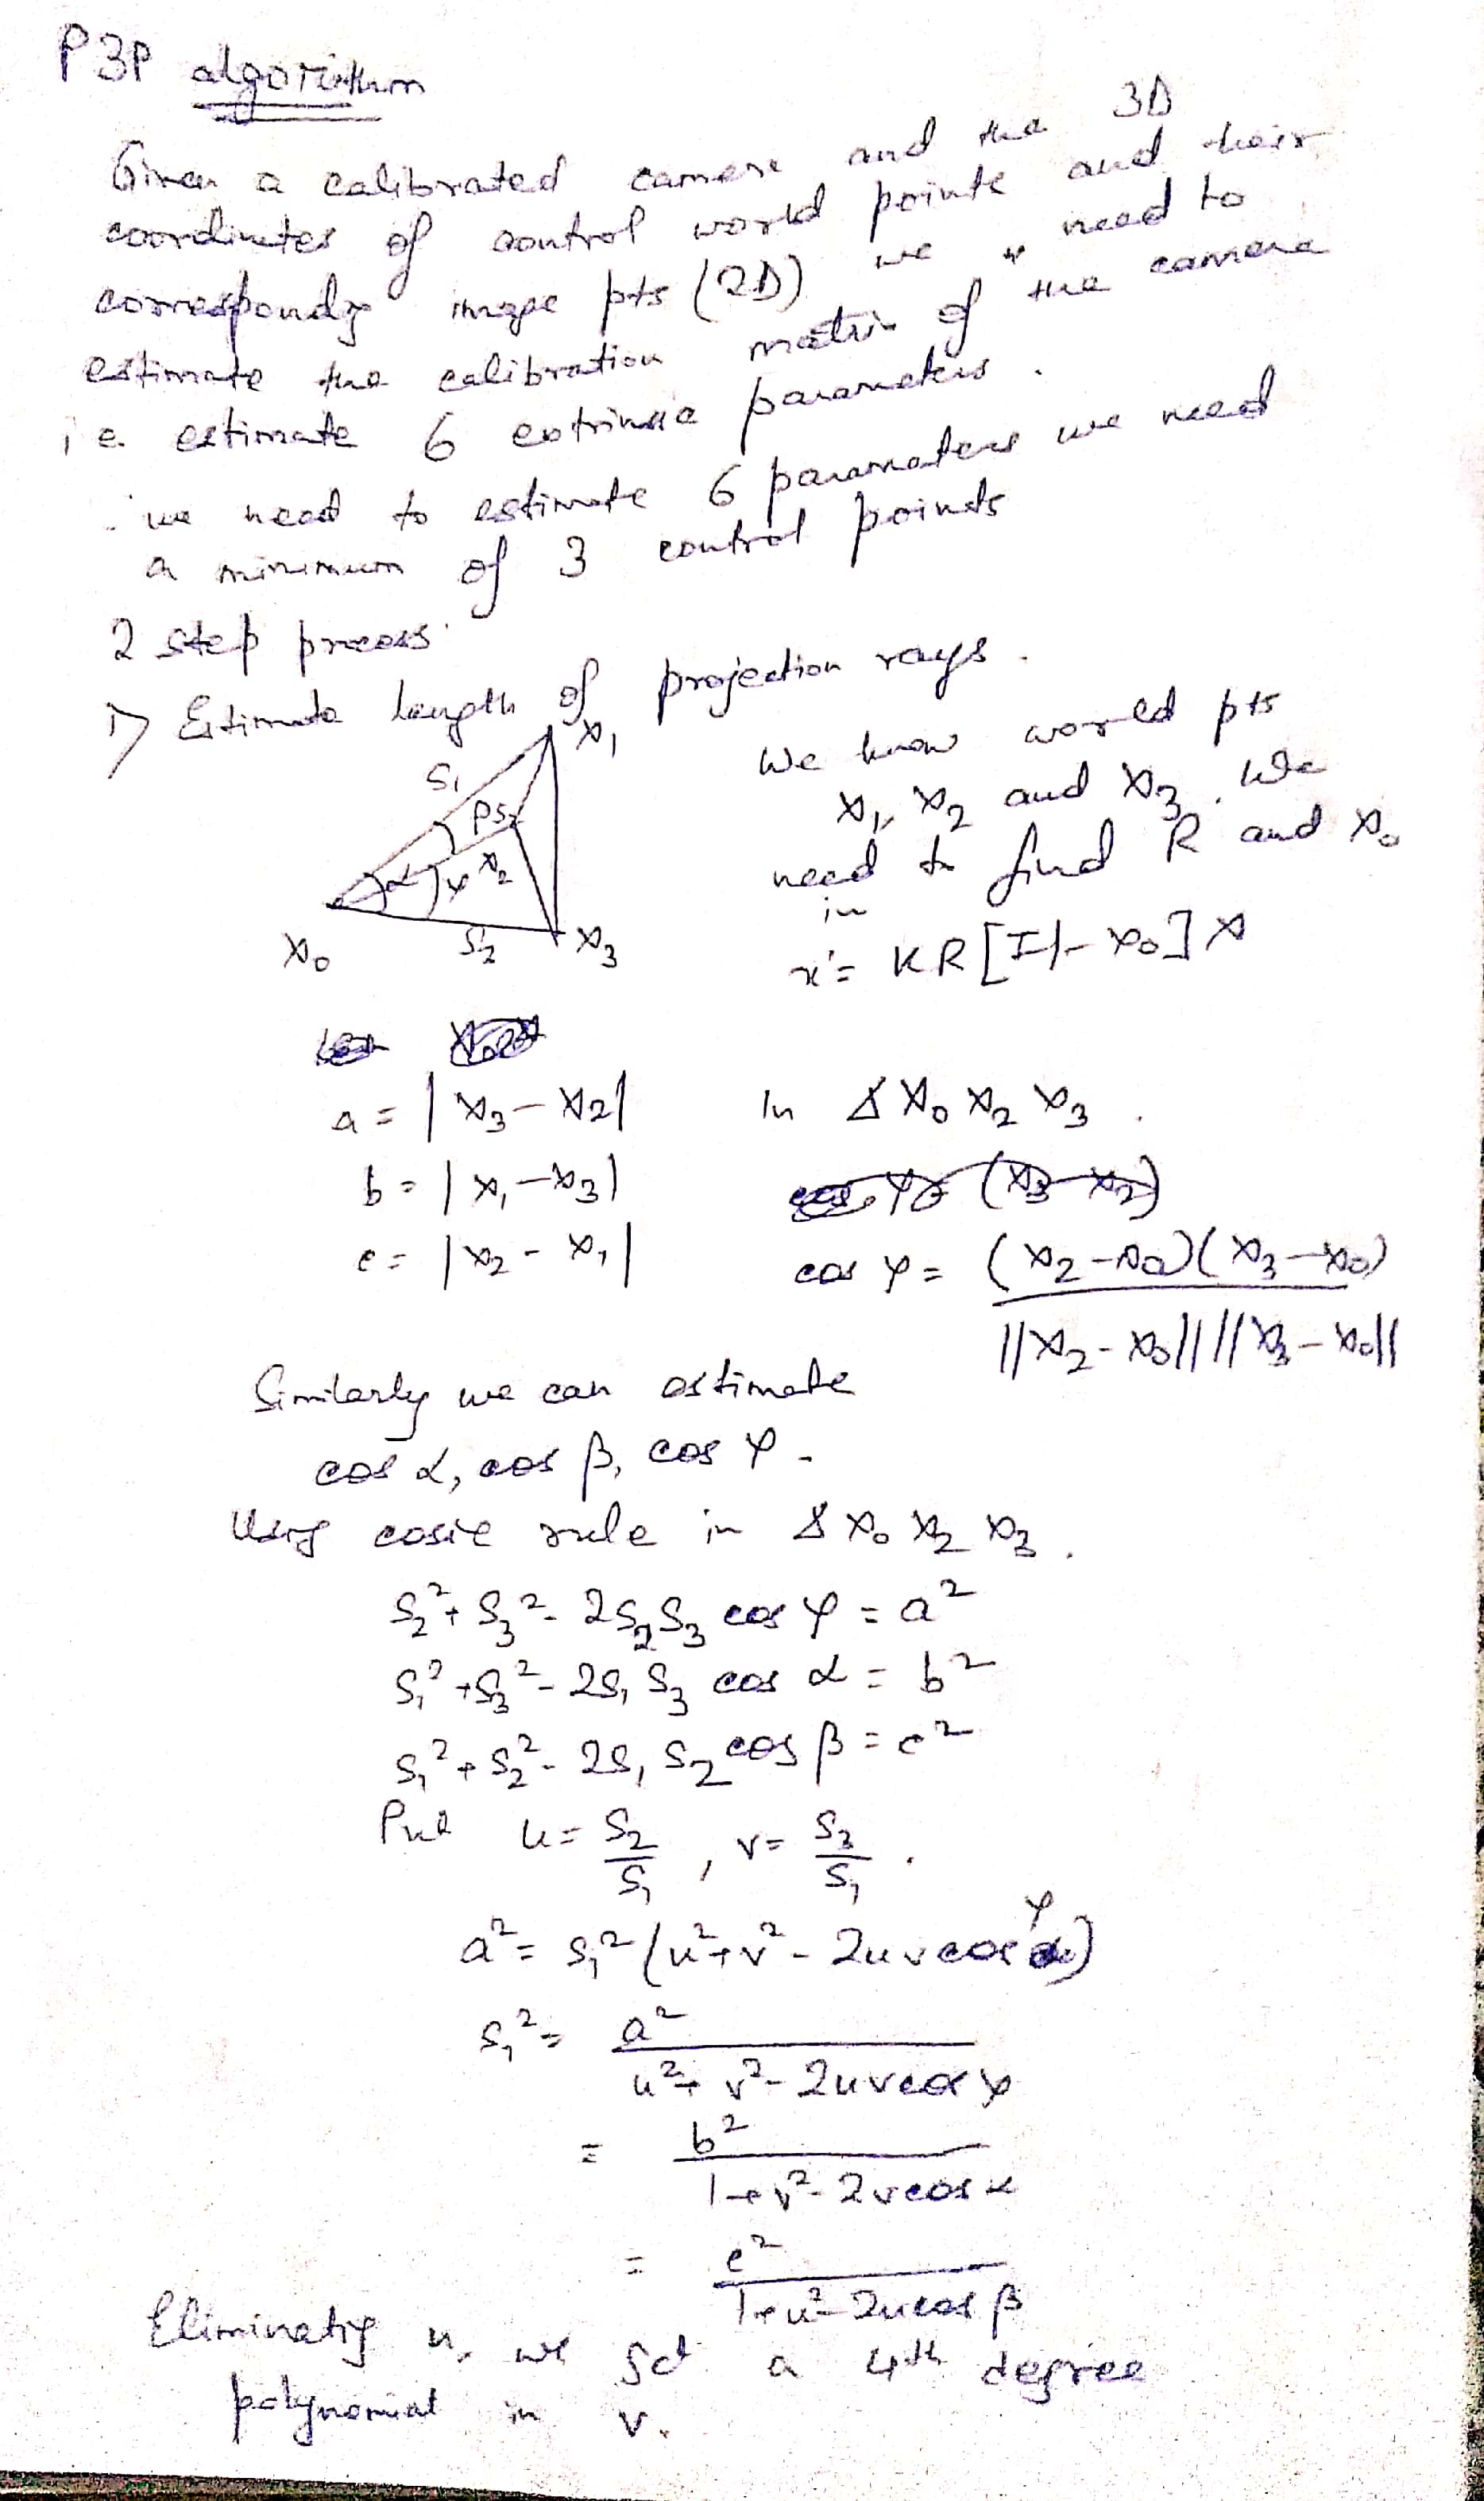 P3P algorithm
Given a calibrated camera and the 3D
coordinates of control world points and their
correspondg image pts (2D) we need to
estimate the calibration matrix of the camera
i.e. estimate 6 extrinsic parameters.
∵ we need to estimate 6 parameters we need
a minimum of 3 control points
2 step process
1) Estimate length of projection rays.
X₁
S₁
β S₂
α φ X₂
X₀ S₂ X₃
We know world pts
X₁, X₂ and X₃. We
need to find R and X₀
in
x' = KR[I|-X₀]X
a = |X₃ - X₂|
b = |X₁ - X₃|
c = |X₂ - X₁|
In Δ X₀ X₂ X₃.
cos φ = (X₂ - X₀)(X₃ - X₀)
||X₂ - X₀|| ||X₃ - X₀||
Similarly we can estimate
cos α, cos β, cos φ.
Using cosie rule in Δ X₀ X₂ X₃.
S₂² + S₃² - 2S₂S₃ cos φ = a²
S₁² + S₃² - 2S₁S₃ cos α = b²
S₁² + S₂² - 2S₁S₂ cos β = c²
Put u = S₂/S₁, v = S₃/S₁.
a² = S₁²(u² + v² - 2uv cos φ)
S₁² = a²/(u² + v² - 2uv cos φ)
= b²/(1 + v² - 2v cos α)
= c²/(1 + u² - 2u cos β)
Eliminatig u, we get a 4th degree
polynomial in v.